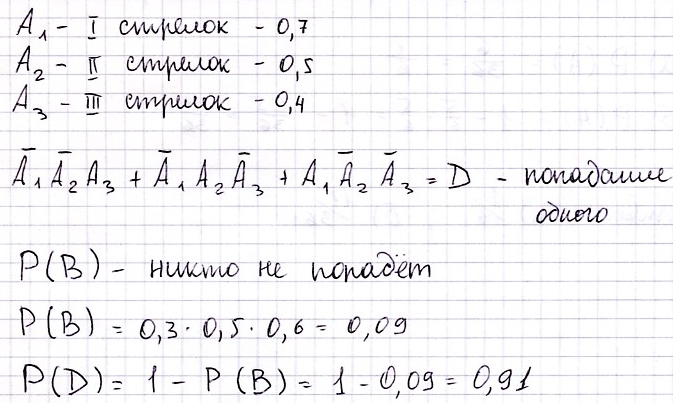 A₁ - I стрелок - 0,7
A₂ - II стрелок - 0,5
A₃ - III стрелок - 0,4
Ā₁ Ā₂ A₃ + Ā₁ A₂ Ā₃ + A₁ Ā₂ Ā₃ = D - попадание
одного
P(B) - никто не попадёт
P(B) = 0,3 · 0,5 · 0,6 = 0,09
P(D) = 1 - P(B) = 1 - 0,09 = 0,91